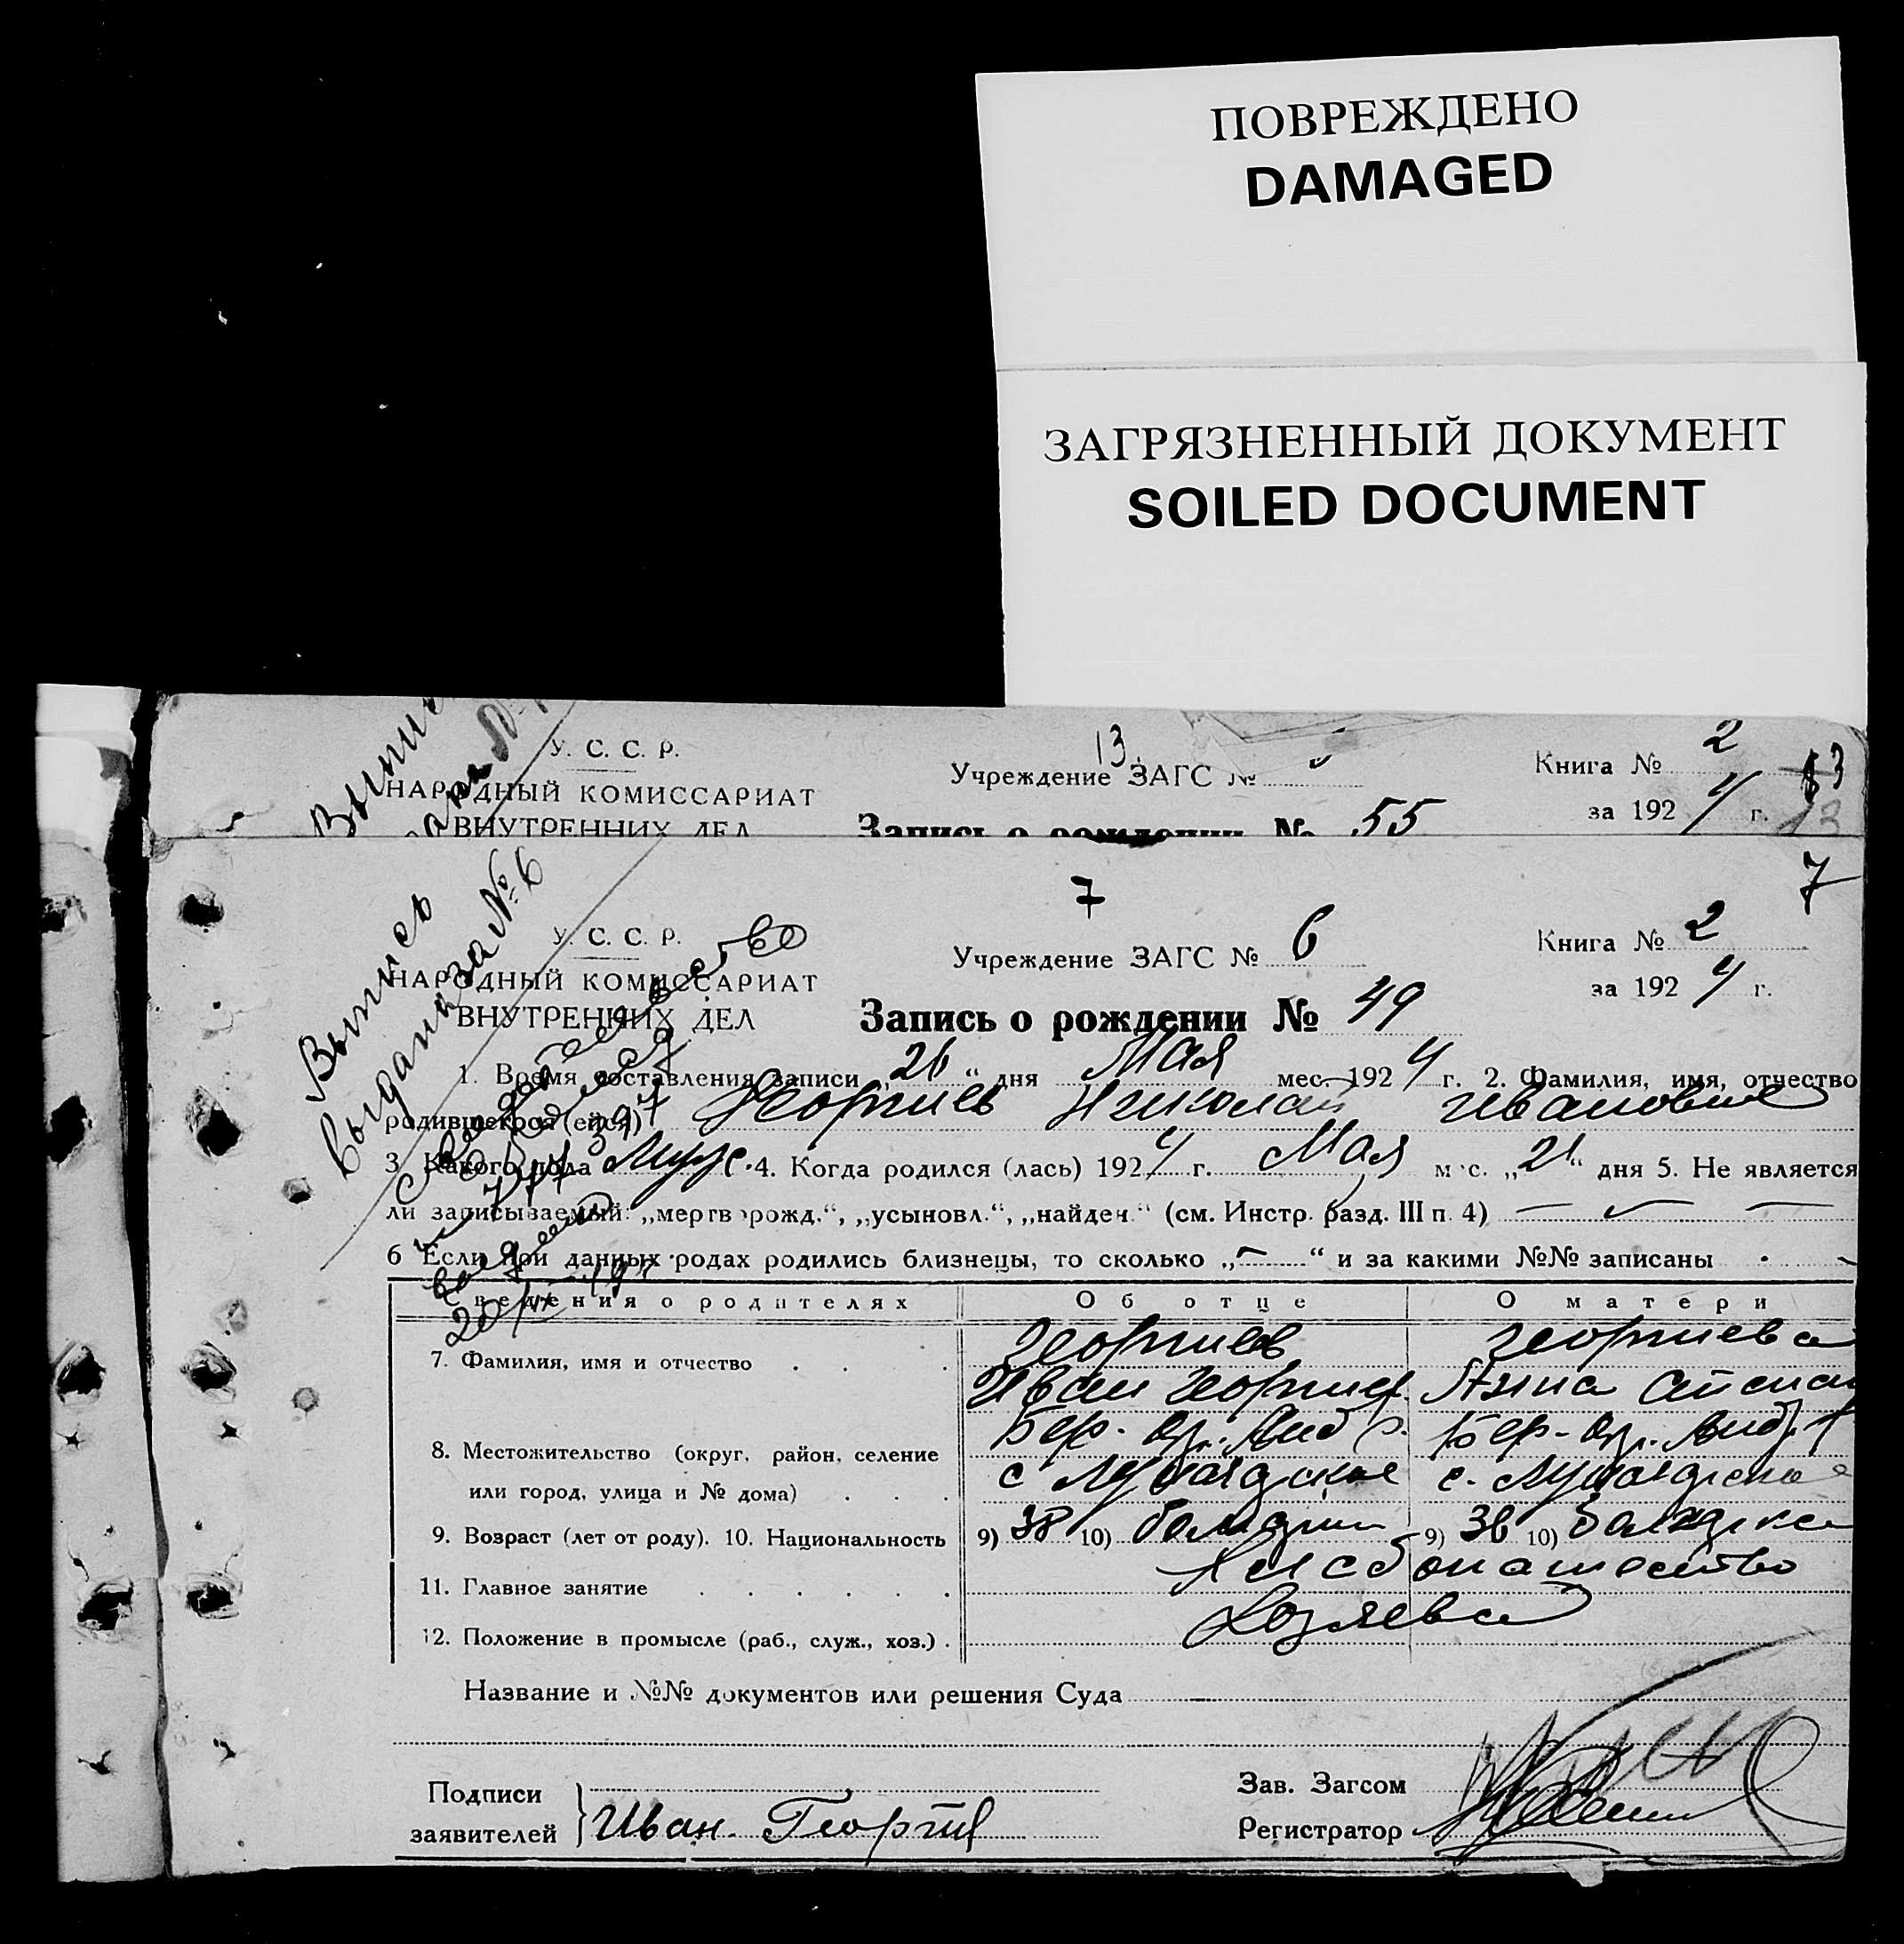 ПОВРЕЖДЕНО
DAMAGED
ЗАГРЯЗНЕННЫЙ ДОКУМЕНТ
SOILED DOCUMENT
У. С. С. Р.
НАРОДНЫЙ КОМИССАРИАТ
ВНУТРЕННИХ ДЕЛ
13
Учреждение ЗАГС №
Запись о рождении № 55
Книга № 2
за 1924 г.
13
Выпись
выдана за № 6
У. С. С. Р.
НАРОДНЫЙ КОМИССАРИАТ
ВНУТРЕННИХ ДЕЛ
7
Учреждение ЗАГС № 6
Запись о рождении № 49
7
Книга № 2
за 1924 г.
1. Время составления записи „26“ дня Мая мес. 1924 г. 2. Фамилия, имя, отчество
родившегося (ейся) Георгиев Николай Иванович
3. Какого пола Муж. 4. Когда родился (лась) 1924 г. Мая мес. „21“ дня 5. Не является
ли записываемый: „мертворожд.“, „усыновл.“, „найден.“ (см. Инстр. разд. III п. 4) —
6 Если при данных родах родились близнецы, то сколько „—“ и за какими №№ записаны
Свидетельство
выдано
Сведения о родителях Об отце О матери
7. Фамилия, имя и отчество Георгиев Георгиева
Иван Георгиев. Анна
8. Местожительство (округ, район, селение Бер. окр. Анд р. Бер. окр. Анд. р
или город, улица и № дома) с с.
9. Возраст (лет от роду). 10. Национальность 9) 38 10) болгарин 9) 36 10) болгарка
11. Главное занятие Хлебопашество
12. Положение в промысле (раб., служ., хоз.) Хозяева
Название и №№ документов или решения Суда —
Подписи
заявителей Иван Георгив
Зав. Загсом
Регистратор